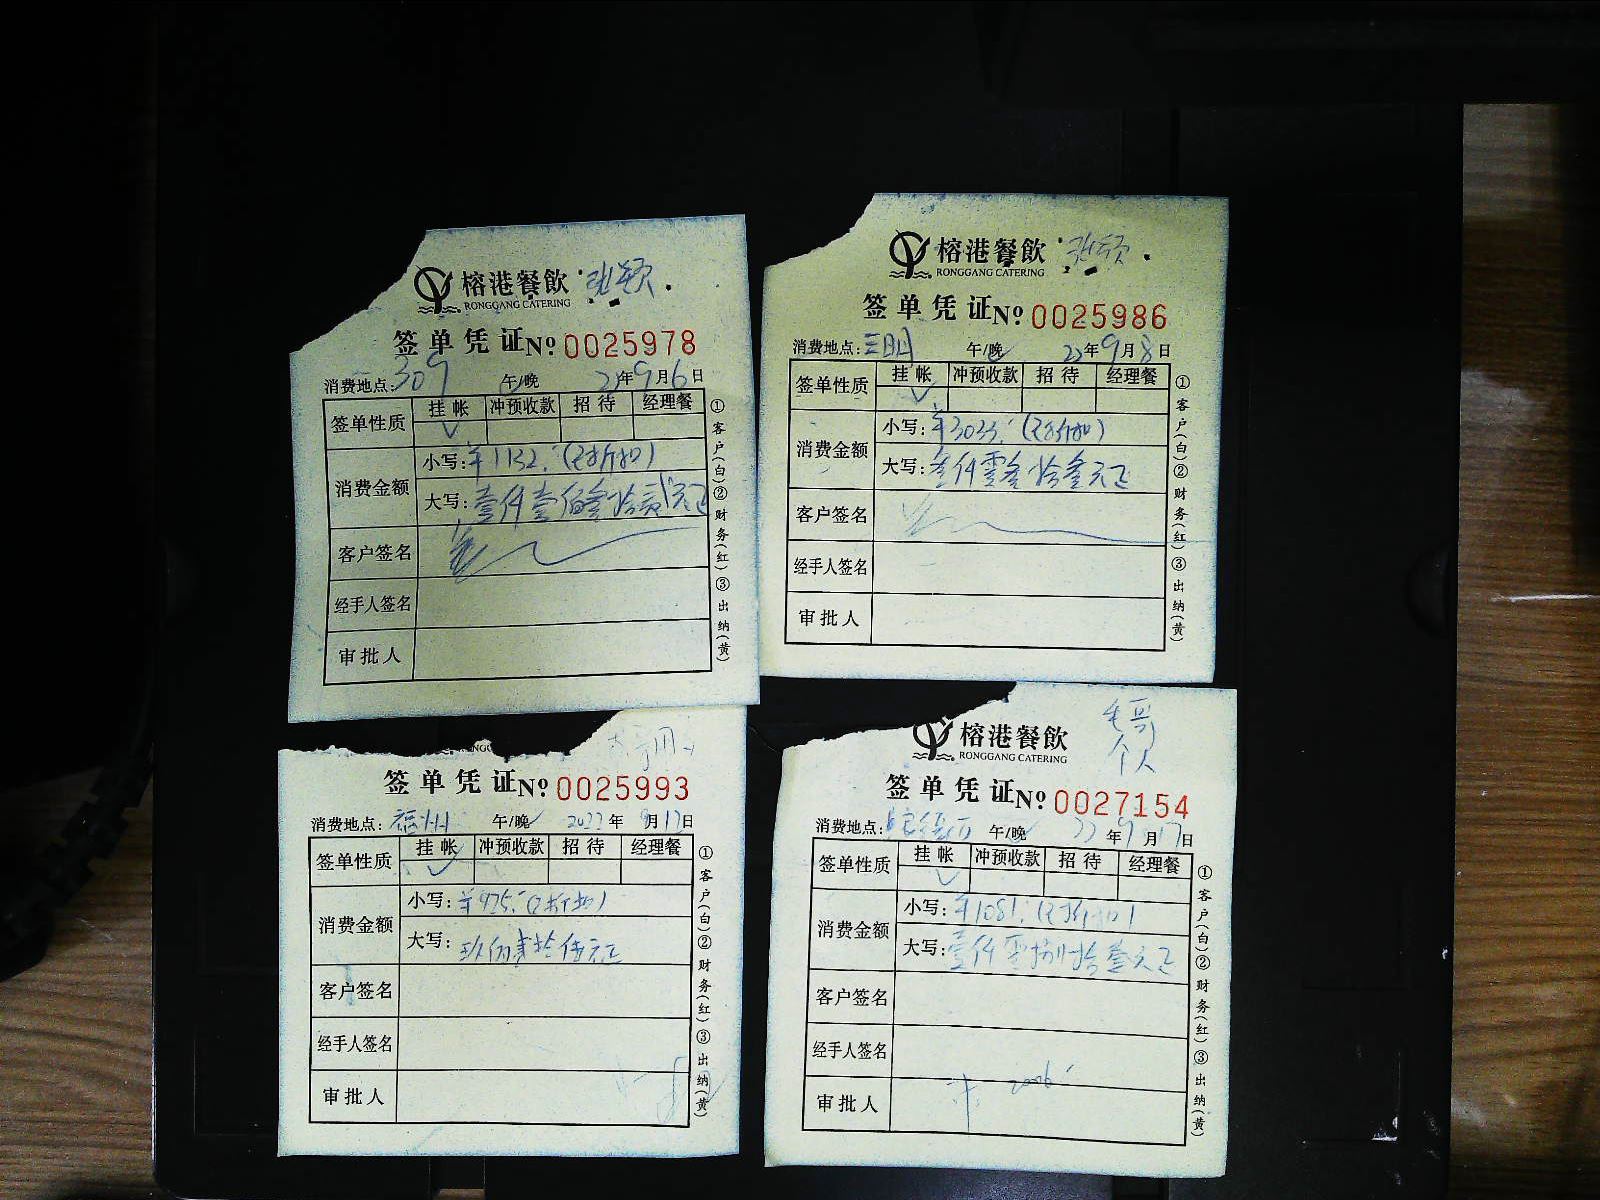 榕港餐飲 张颖
RONGGANG CATERING
签单凭证 No 0025978
消费地点: 309 午/晚 22年9月6日
签单性质 挂帐 冲预收款 招待 经理餐
✓
消费金额 小写: ¥1132. (已折扣)
大写: 壹仟壹佰叁拾贰元正
客户签名
经手人签名
审批人
①客户(白)②财务(红)③出纳(黄)
榕港餐飲 张颖
RONGGANG CATERING
签单凭证 No 0025986
消费地点: 三明 午/晚 22年9月8日
签单性质 挂帐 冲预收款 招待 经理餐
✓
消费金额 小写: ¥3033. (已折扣)
大写: 叁仟零叁拾叁元正
客户签名
经手人签名
审批人
①客户(白)②财务(红)③出纳(黄)
签单凭证 No 0025993
消费地点: 福州 午/晚 2022年9月12日
签单性质 挂帐 冲预收款 招待 经理餐
✓
消费金额 小写: ¥925. (已折扣)
大写: 玖佰贰拾伍元正
客户签名
经手人签名
审批人
①客户(白)②财务(红)③出纳(黄)
榕港餐飲 毛哥
RONGGANG CATERING 个人
签单凭证 No 0027154
消费地点: 午/晚 22年9月17日
签单性质 挂帐 冲预收款 招待 经理餐
✓
消费金额 小写: ¥1081. (已折扣)
大写: 壹仟零捌拾壹元正
客户签名
经手人签名
审批人
①客户(白)②财务(红)③出纳(黄)